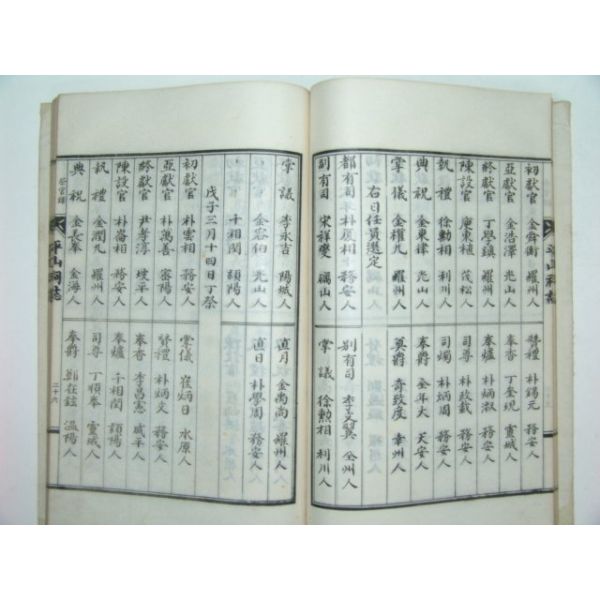 初獻官 金舜衡 羅州人
亞獻官 金浩澤 光山人
終獻官 丁學鎮 羅州人
陳設官 庾東植 茂松人
執禮 徐勲相 利川人
典祝 金東律 光山人
掌儀 金權九 羅州人
右日任員選定
都有司 朴夏相 務安人
副有司 宋祥燮 福山人
贊禮 朴錫元 務安人
奉香 丁奎現 靈城人
奉爐 朴炳淑 務安人
司尊 朴政裁 務安人
司燭 朴炳周 務安人
奉爵 金年火 天安人
奠爵 奇致度 幸州人
別有司 李 翼 全州人
掌議 徐勲相 利川人
掌議 李永吉 陽城人
副有司 金容 光山人
千相閔 潁陽人
戊子三月十四日丁祭
初獻官 朴雲相 務安人
亞獻官 朴萬善 密陽人
終獻官 尹孝淳 坡平人
陳設官 朴崙相 務安人
執禮 金潤九 羅州人
典祝 金長奉 金海人
直月 金尚 羅州人
直日 朴學周 務安人
掌儀 崔炳日 水原人
贊禮 朴炳文 務安人
奉香 李昌憲 咸平人
奉爐 千相閔 潁陽人
司尊 丁順奉 靈城人
奉爵 鄭在鉉 溫陽人
祭官錄
平山祠誌
二十六
平山祠誌